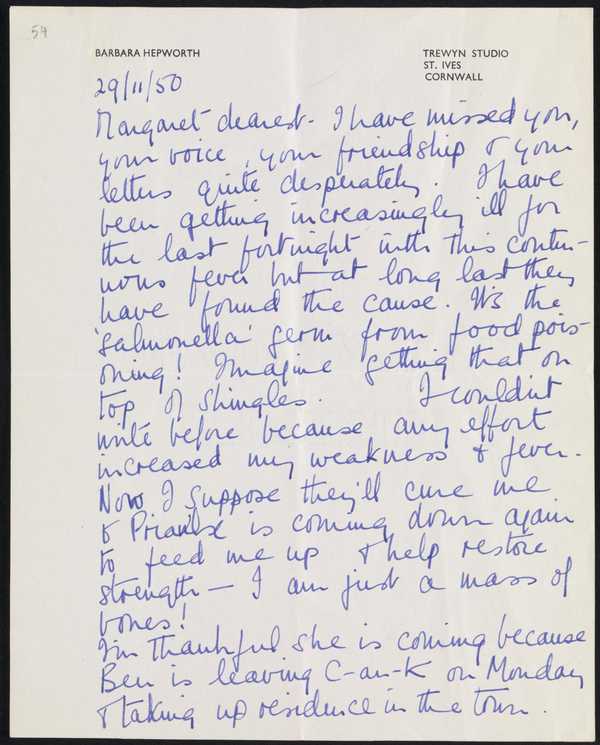 59
BARBARA HEPWORTH
TREWYN STUDIO
ST. IVES
CORNWALL
29/11/50
Margaret dearest - I have missed you,
your voice, your friendship & your
letters quite desperately. I have
been getting increasingly ill for
the last fortnight with this contin-
uous fever but at long last they
have found the cause. It's the
'salmonella' germ from food pois-
oning! Imagine getting that on
top of shingles. I couldn't
write before because any effort
increased my weakness & fever.
Now I suppose they'll cure me
& is coming down again
to feed me up & help restore
strength — I am just a mass of
bones!
I'm thankful she is coming because
Ben is leaving C-an-K on Monday
& taking up residence in the town.